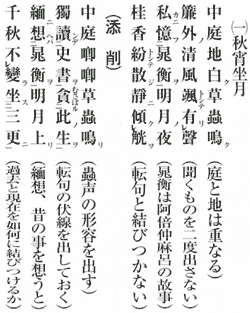 (一) 秋宵坐月
中庭地白草蟲鳴 (庭と地は重なる)
簾外清風颯有聲 (聞くものを二度出さない)
私憶晁衡明月夜 (晁衡は阿倍仲麻呂の故事)
桂香紛散靜傾觥 (転句と結びつかない)
(添削)
中庭喞喞草蟲鳴 (蟲声の形容を出す)
獨讀史書貪此生 (転句の伏線を出しておく)
緬想晁衡明月上 (緬想、昔の事を想うと)
千秋不變坐三更 (過去と現在を如何に結びつけるか)